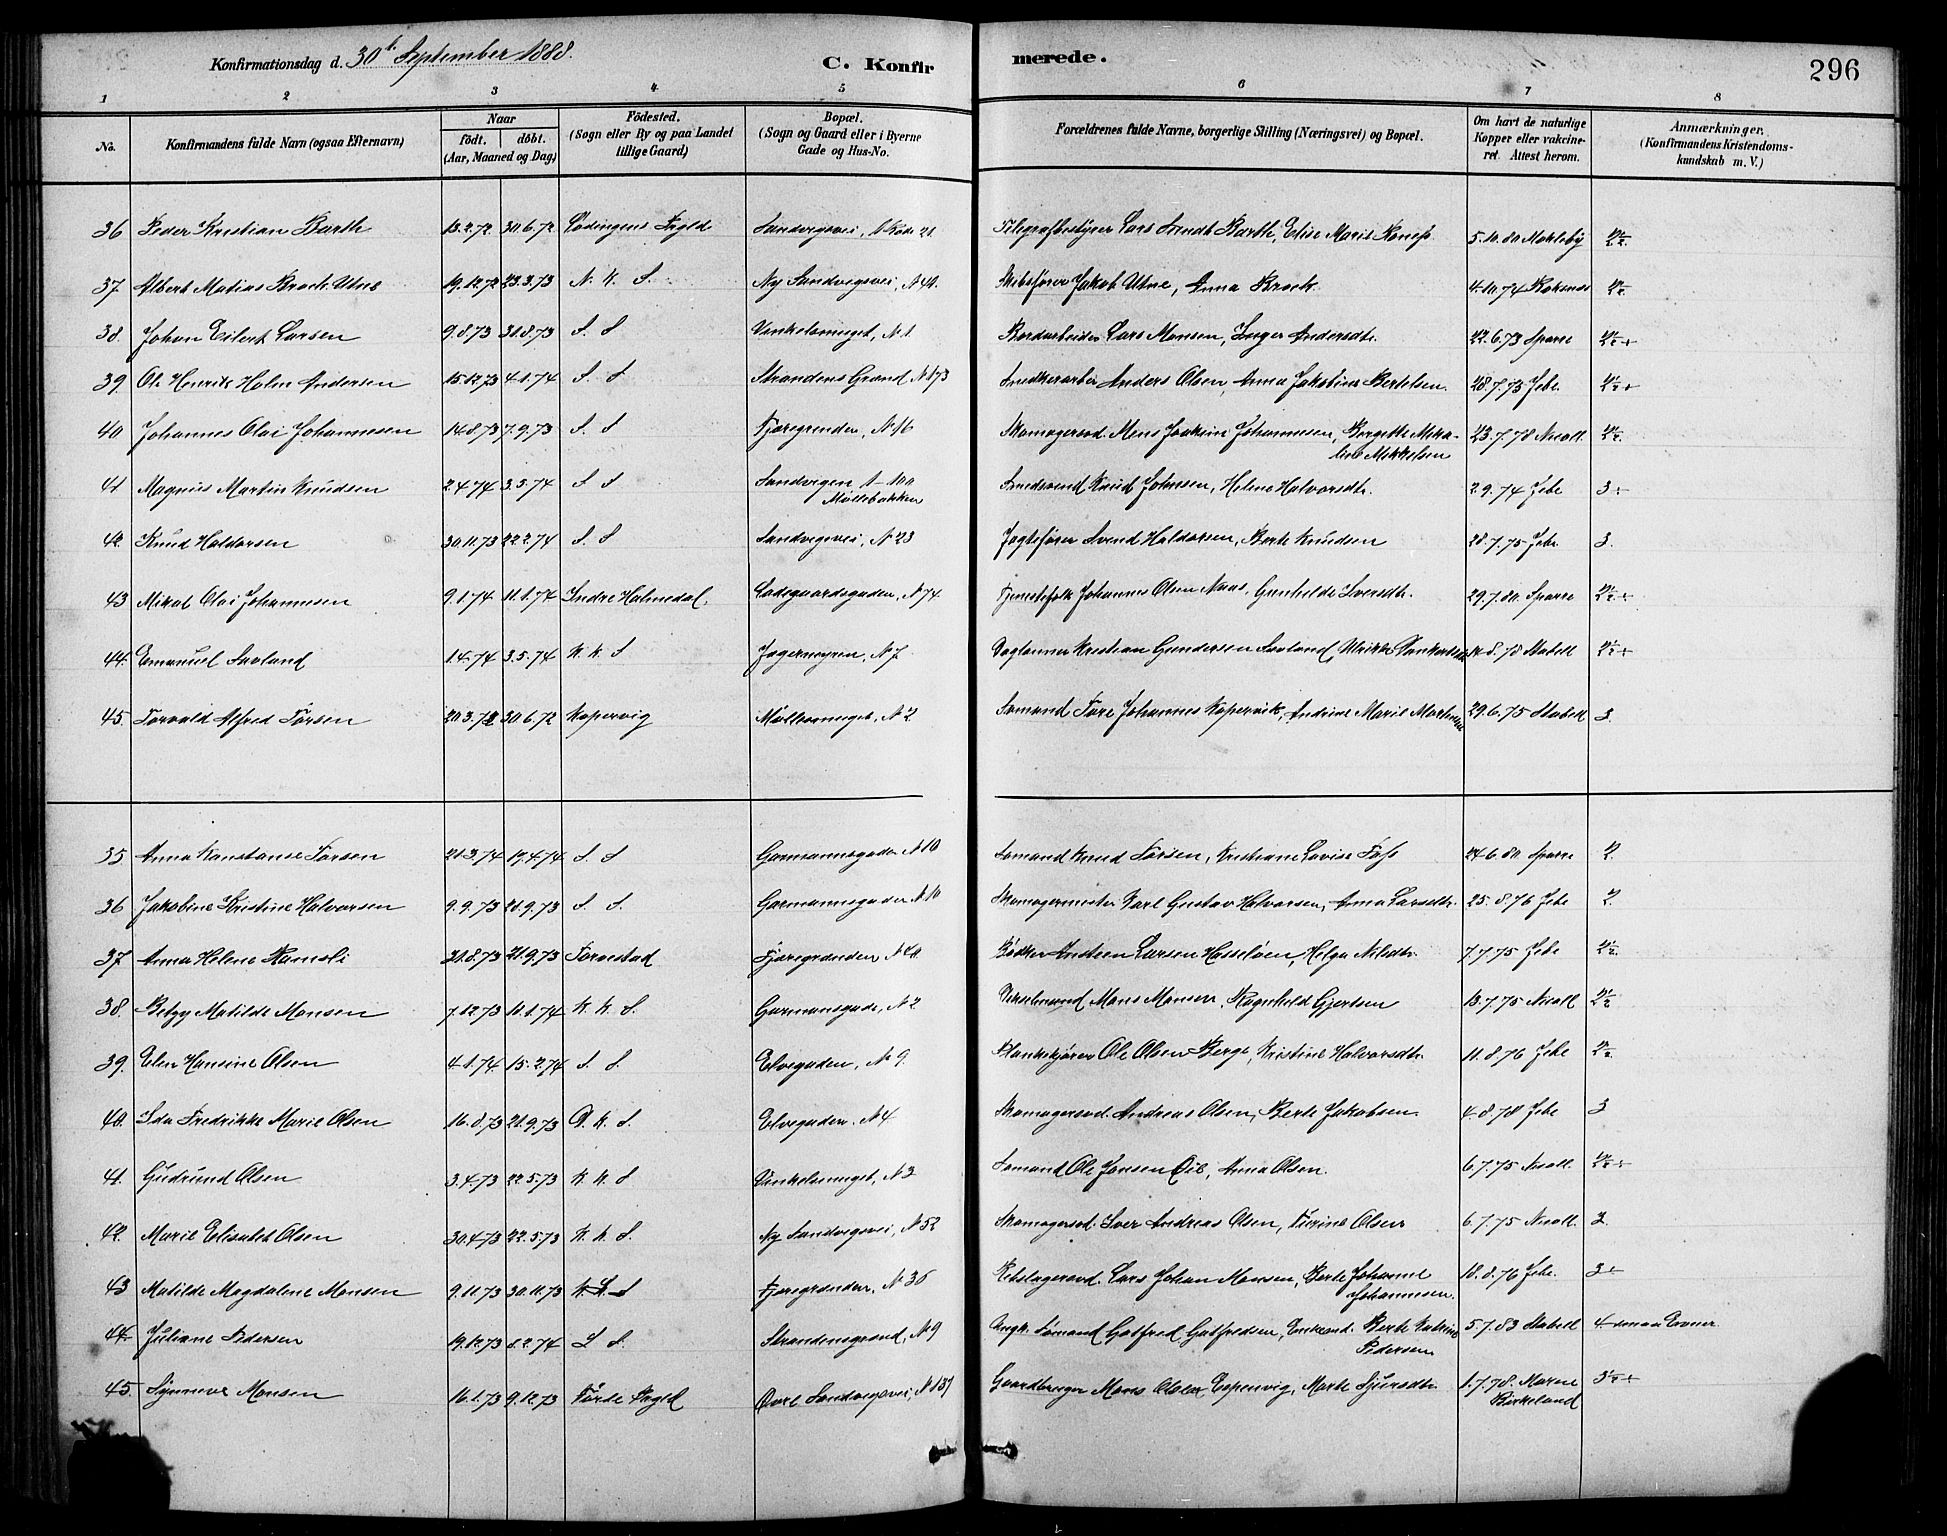 Konfirmationsdag d. 30t September 1888.
C. Konfir
merede.
296
1 2 3 4 5 6 7 8
No.
Konfirmandens fulde Navn (ogsaa Efternavn)
Naar
födt. döbt.
(Aar, Maaned og Dag)
Födested.
(Sogn eller By og paa Landet
tillige Gaard)
Bopæl.
(Sogn og Gaard eller i Byerne
Gade og Hus-No.
Forældrenes fulde Navne, borgerlige Stilling (Næringsvei) og Bopæl.
Om havt de naturlige
Kopper eller vakcine-
ret. Attest herom.
Anmærkninger.
(Konfirmandens Kristendoms-
kundskab m. V.)
36 Peder Kristian Barth 13.2.72 30.6.72 Lødingens Prgld Sandvigsvei, 21 Telegrafbestyrer Lars Arendt Barth, Elise Marie 5.10.80
37 Albert Matias Brock Utne 19.12.72 23.3.73 N. K. S. Ny Sandvigsvei, Skibsfører Jakob Utne, Anna Brock. 4.10.74
38. Johan Eilert Larsen 9.8.73 31.8.73 S. S Vinkelsmuget, N 1 Lars Monsen, Inger Andersdtr. 22.6.73 Sparre
39. Ole Henrik Holm Andersen 15.12.73 4.1.74 S. S Strandens Grand N 173 Snedkerarbei Anders Olsen, Anna Jakobine Bertelsen. 28.7.75 Jebe.
40 Johannes Olai Johannesen 14.8.73 7.9.73 S. S Fjæregrenden, N 16 Skomagersvd. Mons Joakim Johannesen, Bergitte Mika-
line Mikkelsen 23.7.78 Nicoll.
41 Magnus Martin Knudsen 2.4.74 3.5.74 S S Sandvigen
Møllebakken Smedsvend Knud Johnsen, Helene Halvorsdtr. 2.9.74 Jebe 3 ÷
42. Knud Haldorsen 30.11.73 22.2.74 S. S Sandvigsvei, N 23 Jagtefører Svend Haldorsen, Berte Knudsen 28.7.75 Jebe 3.
43 Mikal Olai Johannesen 9.1.74 11.1.74 Indre Holmedal. Ladegaardsgaden, N 74 Tjenestefolk Johannes Olsen Naas, Gunhilde Iversdtr. 29.7.80. Sparre
44. Emanuel Savland 1.4.74 3.5.74 K. K. S Jægermyren, N 7 Daglønner Kristian Gundersen Savland, Ulrikke 8.78 Stabell
45. Torvald Alfred Torsen 20.3.72 30.6.72 Kopervig Møllesmuget, N 2 Sømand Tore Johannes Kopervik, Andrine Marie 29.6.75 Stabell 3.
35 Anna Konstanse Torsen 21.3.74 19.4.74 S. S Garmannsgaden N 10 Sømand Knud Torsen, Kristiane Lovise 24.6.80 Sparre 2.
36 Jakobine Kristine Halvorsen 9.9.73 21.9.73 S S. Garmannsgaden N 10 Skomagermester Karl Gustav Halvorsen, Anna Larsdtr. 25.8.76 Jebe 2.
37 Anna Helene Ramsli 31.8.73 21.9.73 Torvestad Fjæregrænden Bødker Andreen Larsen Hasseløen, Helga Nilsdtr. 7.7.75 Jebe
38. Betzy Matilde Monsen 7.12.73 11.1.74 K. K. S. Garmansgade, N 2 Mons Monsen, Ragnhild Gjertsen 13.7.75 Nicoll
39. Elen Hansine Olsen 4.1.74. 15.2.74 S. S. Elvegaden, N 9. Plankekjører Ole Olsen Berge, Kristine Halvorsdtr. 11.8.76 Jebe
40. Ida Fredrikke Marie Olsen 16.8.73 21.9.73 K. S. Elvegaden. N 4 Skomagersvd. Andreas Olsen, Berte Jakobsen. 4.8.78 Jebe 3
41. Gudrund Olsen 3.4.73 22.5.73 K K S Vinkelsmuget, N 3 Sømand Ole Jansen Anna Olsen. 6.7.75 Nicoll.
42. Marie Elisabet Olsen 30.4.73 22.5.73 K. K S. Ny Sandvigsvei, N 52 Skomagersvd. Iver Andreas Olsen, Turine Olsen 6.7.75 Nicoll. 3
43 Matilde Magdalene Monsen 9.11.73 30.11.73 Fjæregrænden, N 36 Rebslagersvd. Lars Johan Monsen, Berte Johanne
Johannesen. 18.8.76 Jebe. 3 ÷
44. Juliane Pedersen 19.12.73 8.2.74 S S. Strandensgrand, N 9 Ungk. Sømand Gotfred Gotfredsen, Enkeand. Berte Katrine
Pedersen 5.7.83 Stabell 4 smaa Evner.
45. Synneve Monsen 16.1.73 9.12.73 Førde Prgld Øvre Sandvigsvei, N 137 Gaardbruger Mons Olsen Espenvig, Marte Sjursdtr. 1.7.78.
Birkeland